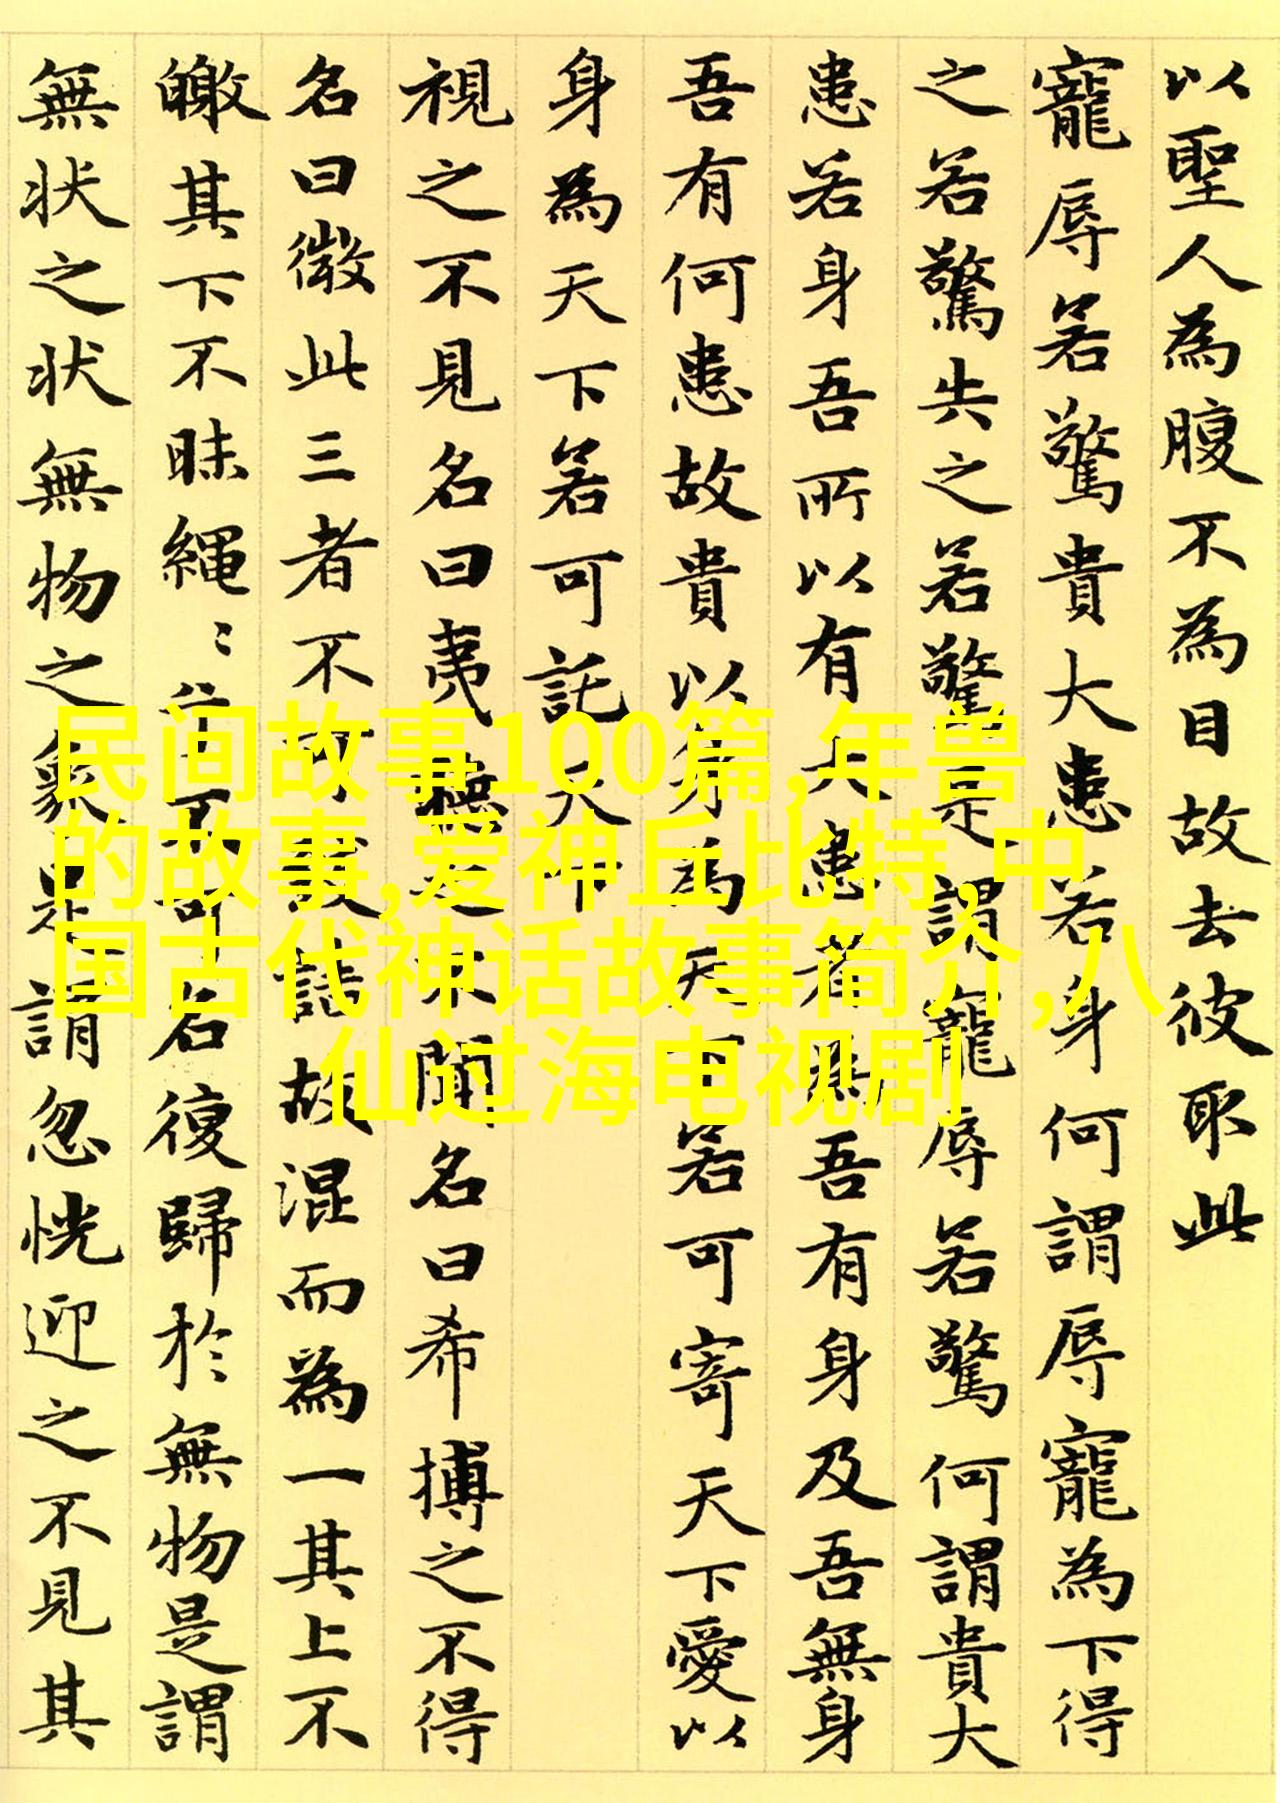 以聖人為腹不為目故去彼取此
寵辱若驚貴大患若身何謂辱寵為下得
之若驚失之若驚是謂寵辱若驚何謂貴大
患若身吾所以有大患者為吾有身及吾無身
吾有何患故貴以身為天下若可寄天下愛以
身為天下若可託天下
視之不見名曰夷聽之不聞名曰希搏之不得
名曰微此三者不可致詰故混而為一其上不
皦其下不昧繩〻兮不可名復歸於無物是謂
無状之状無物之象是謂忽恍迎之不見其
民间故事100篇,年兽
的故事,爱神丘比特,中
国古代神话故事简介,八
仙过海电视剧